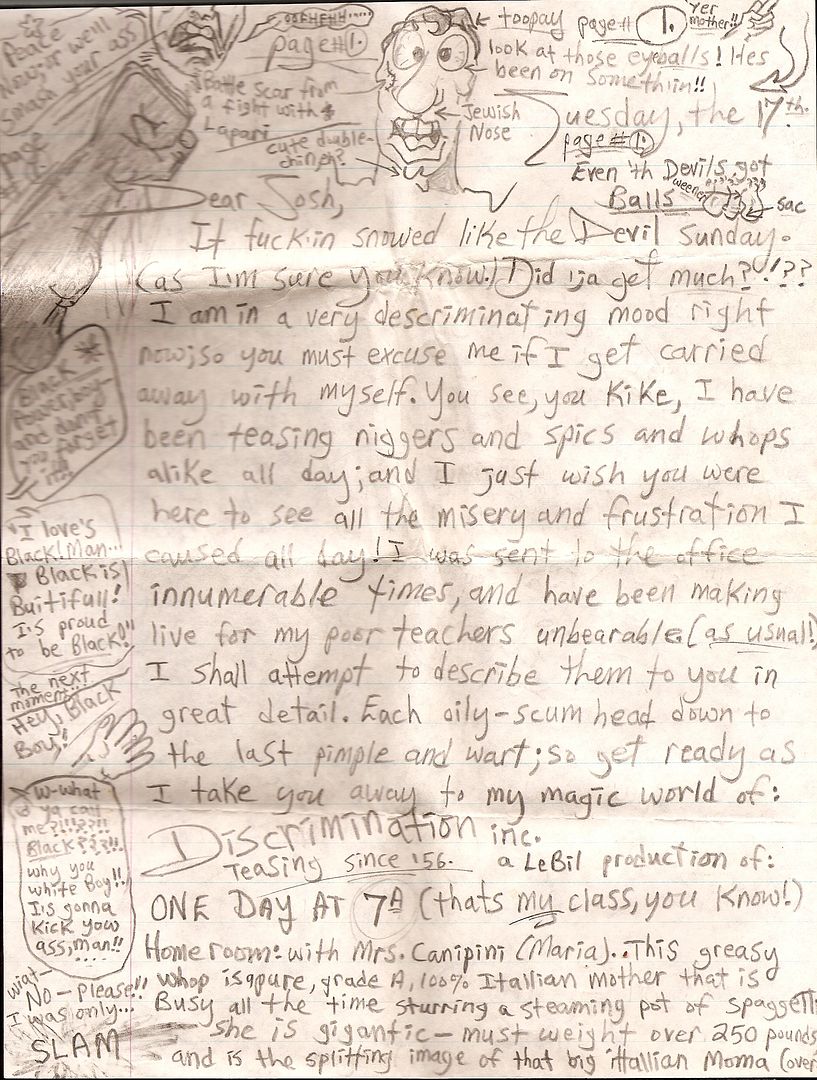 Peace
Now, or we'll
smash your ass
page
OOFHEHH.....
page #1.
Battle scar from
a fight with
Lapari
cute double-
chin, eh?
← toopay page # 1.
Yer
mother!!
look at those eyeballs! Hes
been on somethiin!!
Jewish
Nose
Tuesday, the 17th.
page #1.
Even 'th Devils got
Balls
weener
sac
Dear Josh,
It fuckin snowed like the Devil Sunday.
(as I'm sure you know!) Did 'ja get much?'!??
I am in a very descriminating mood right
now; so you must excuse me if I get carried
away with myself. You see, you Kike, I have
been teasing niggers and spics and whops
alike all day; and I just wish you were
here to see all the misery and frustration I
caused all day! I was sent to the office
innumerable times, and have been making
live for my poor teachers unbearable. (as usual!)
I shall attempt to describe them to you in
great detail. Each oily-scum head down to
the last pimple and wart; so get ready as
I take you away to my magic world of:
Discrimination inc.
Teasing since '56. a LeBil production of:
ONE DAY AT 7A (thats my class, you know!)
Homeroom: with Mrs. Canipini (Maria).. This greasy
whop is a pure, grade A, 100% Itallian mother that is
Busy all the time sturring a steaming pot of spaggetti
she is gigantic - must weight over 250 pounds
and is the splitting image of that big ittallian Moma (over
Black
Power, boy-
and don't
you forget
it!!
"I love's
Black! Man...
Black is
Buitifull!
I's proud
to be Black!"
The next
moment..
Hey, Black
Boy!
W-what
ya call
me?!!!??!!
Black???!!
why you
white Boy!!
I's gonna
Kick yow
ass, man!!
....
wiat-
NO - Please!!
I was only...
SLAM